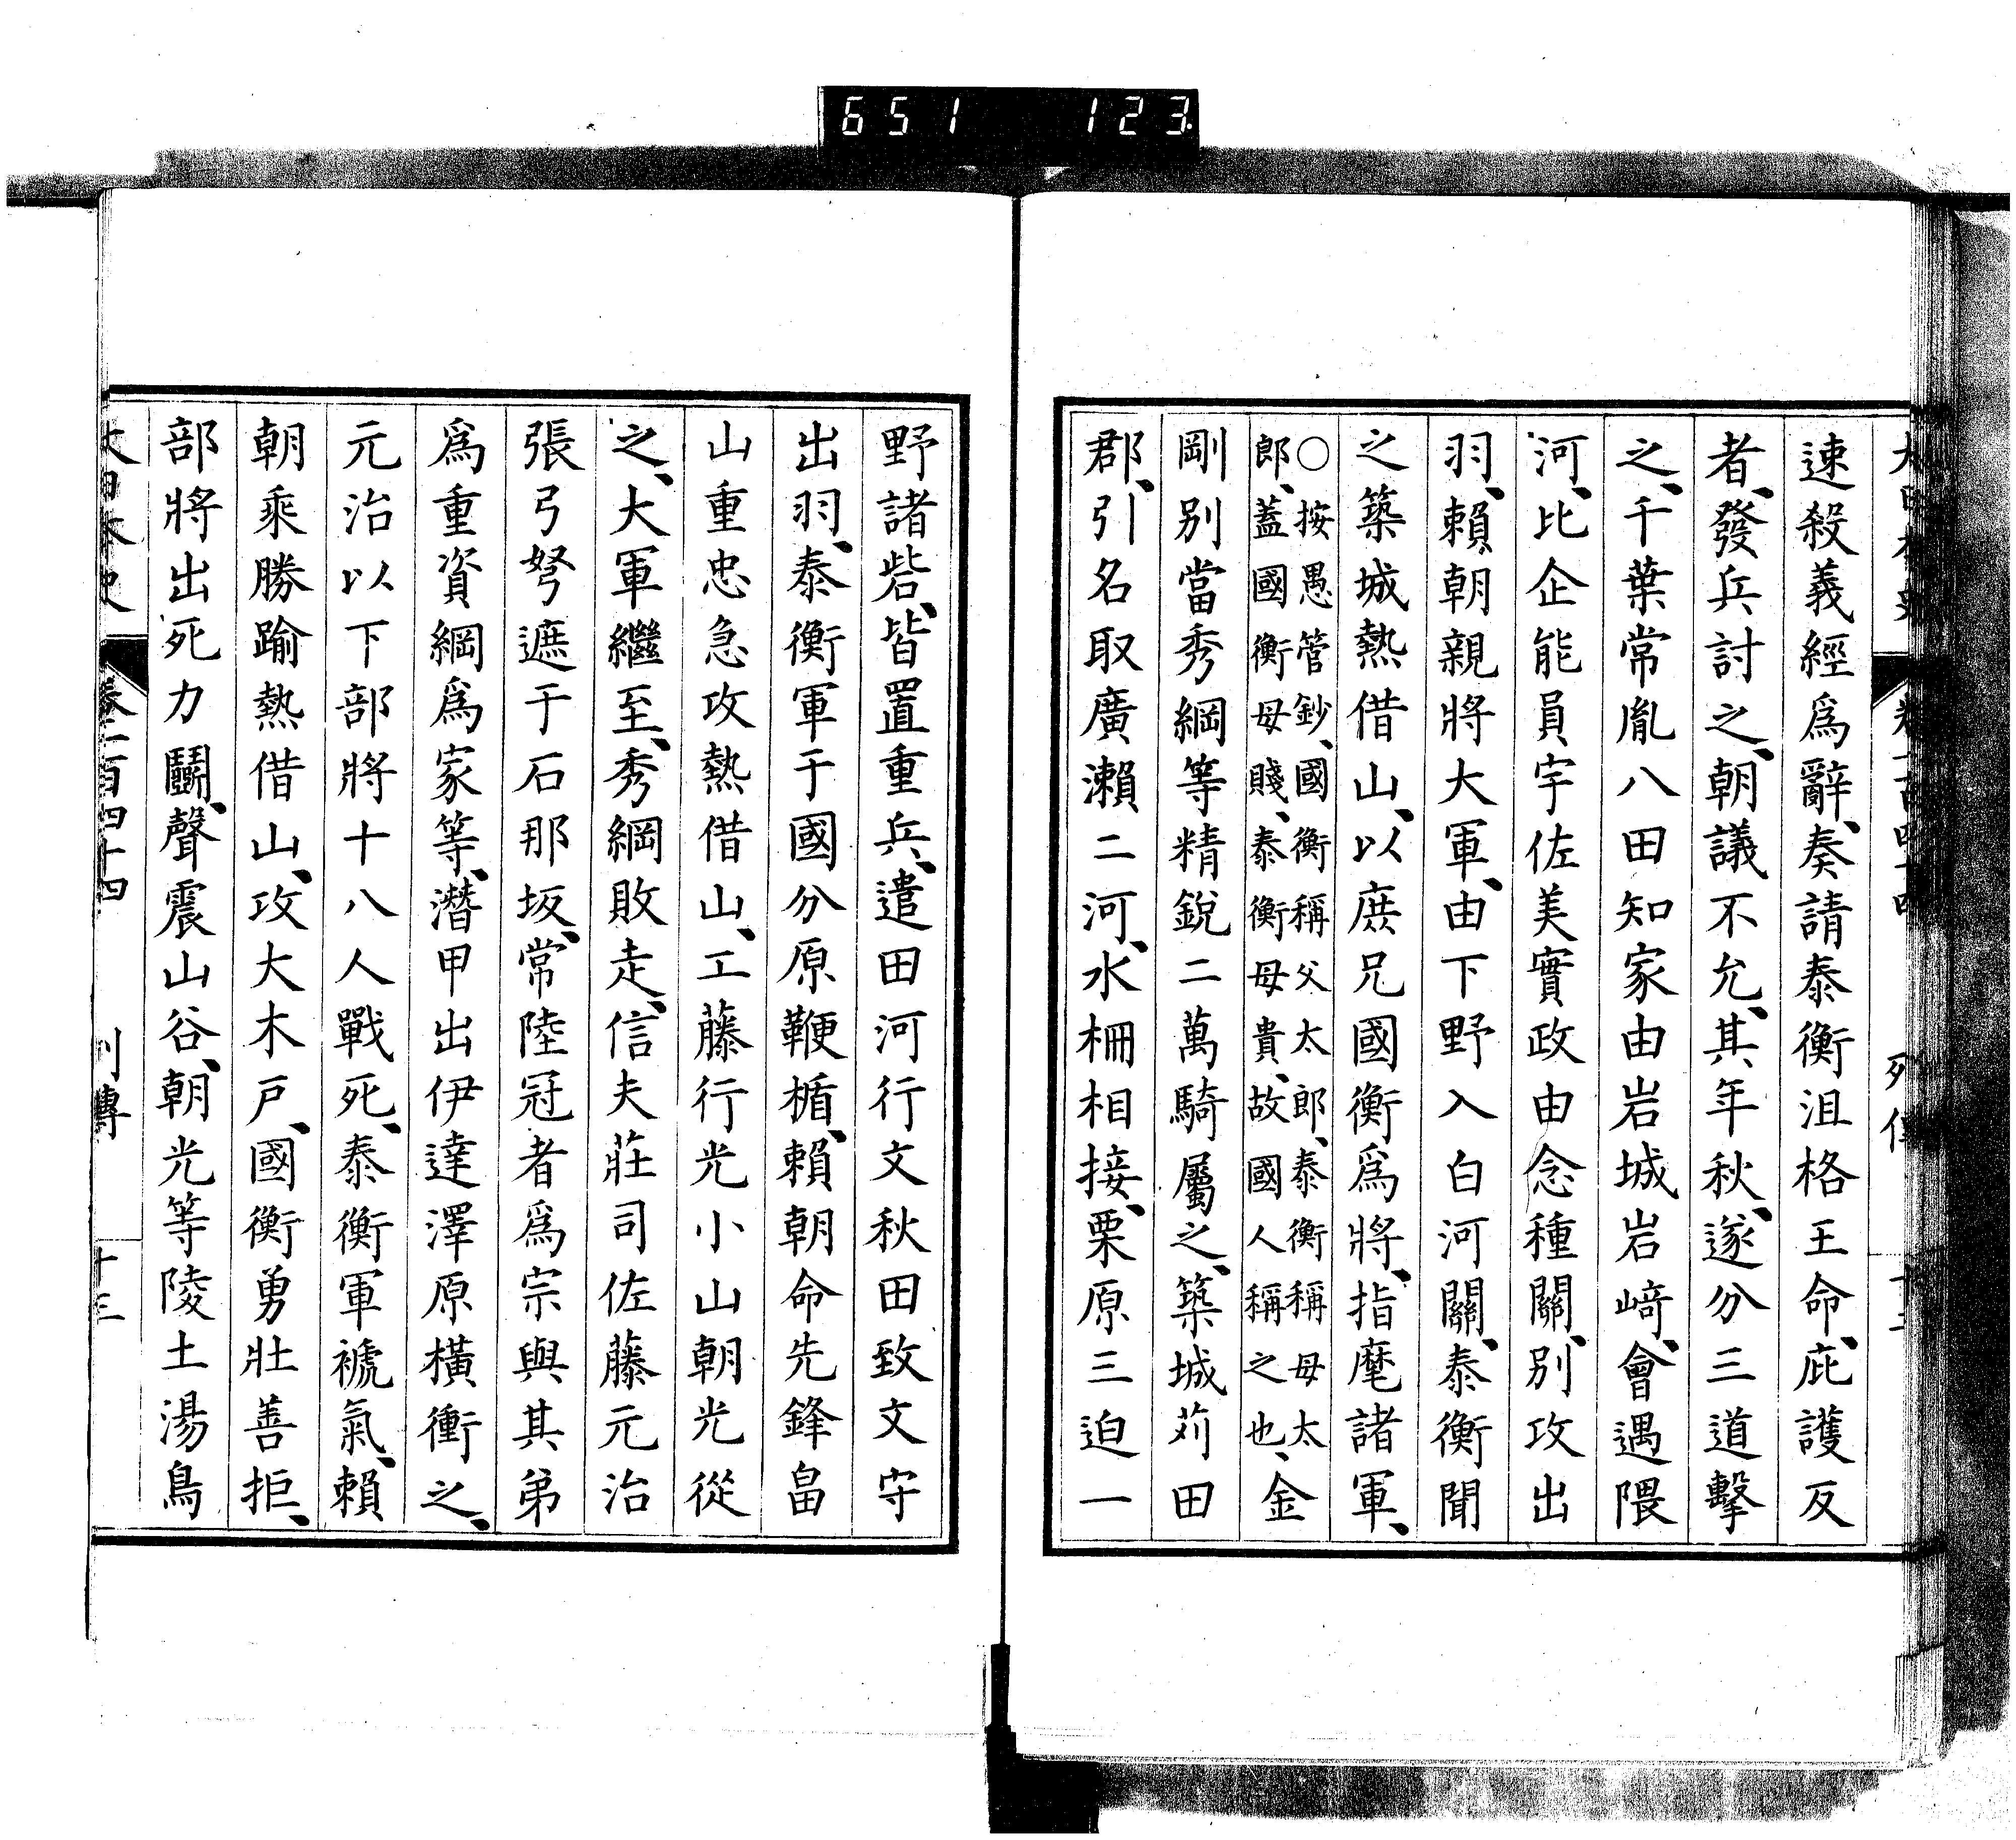 651 123
速殺義經爲辭、奏請泰衡沮格王命、庇護反
者、發兵討之、朝議不允、其年秋、遂分三道擊
之、千葉常胤八田知家由岩城岩﨑、會遇隈
河、比企能員宇佐美實政由念種關、別攻出
羽、賴朝親將大軍、由下野入白河關、泰衡聞
之築城熱借山、以庶兄國衡爲將、指麾諸軍、
○按愚管鈔、國衡稱父太郎、泰衡稱母太
郎、蓋國衡母賤、泰衡母貴、故國人稱之也、金
剛別當秀綱等精銳二萬騎屬之、築城苅田
郡、引名取廣瀨二河、水柵相接、栗原三迫一
野諸砦、皆置重兵、遣田河行文秋田致文守
出羽、泰衡軍于國分原鞭楯、賴朝命先鋒畠
山重忠急攻熱借山、工藤行光小山朝光從
之、大軍繼至、秀綱敗走、信夫莊司佐藤元治
張弓弩遮于石那坂、常陸冠者爲宗與其弟
爲重資綱爲家等、潛甲出伊達澤原橫衝之、
元治以下部將十八人戰死、泰衡軍褫氣、賴
朝乘勝踰熱借山、攻大木戶、國衡勇壯善拒、
部將出死力鬪、聲震山谷、朝光等陵土湯鳥
大日本史 卷二百四十四 列傳 十三